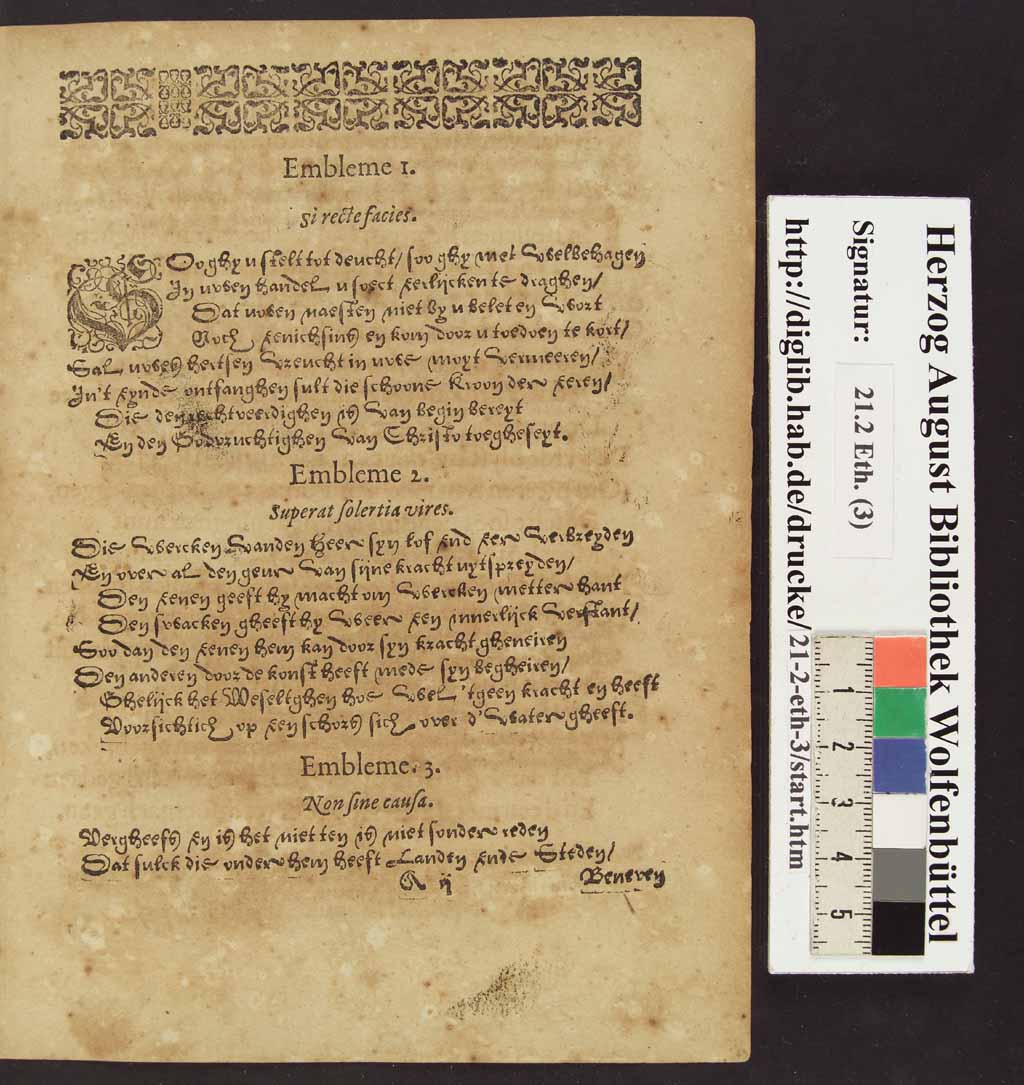 Embleme 1.
Si recte facies.
SOo ghy u stelt tot deucht/ soo ghy met welbehagen
In uwen handel u soect eerlijcken te draghen/
Dat uwen naesten niet by u belet en wort
Noch eenichsins en kom door u toedoen te kort/
Sal uwes hertsen vreucht in uwe moyt vermeeren/
In't eynde ontfanghen sult die schoone kroon der eeren/
Die den rechtveerdighen is van begin bereyt
En den Godvruchtighen van Christo toegheseyt.
Embleme 2.
Superat solertia vires.
Die wercken vanden heer syn lof end eer verbreyden
En over al den geur van sijne kracht uytspreyden/
Den eenen geeft hy macht om wercken metter hant
Den swacken gheeft hy weer een innerlijck verstant/
Soo dan den eenen hem kan door syn kracht gheneiren
Den anderen door de konst heeft mede syn begheiren/
Ghelijck het Weseltghen hoe wel 'tgeen kracht en heeft
Voorsichtich op een schors sich over d'water gheeft.
Embleme. 3.
Non sine causa.
Vergheefs en is het niet ten is niet sonder reden
Dat sulck die onder hem heeft Landen ende Steden/
A ij
Beneven
Herzog August Bibliothek Wolfenbüttel
Signatur: 21.2 Eth. (3)
http://diglib.hab.de/drucke/21-2-eth-3/start.htm
1
2
3
4
5